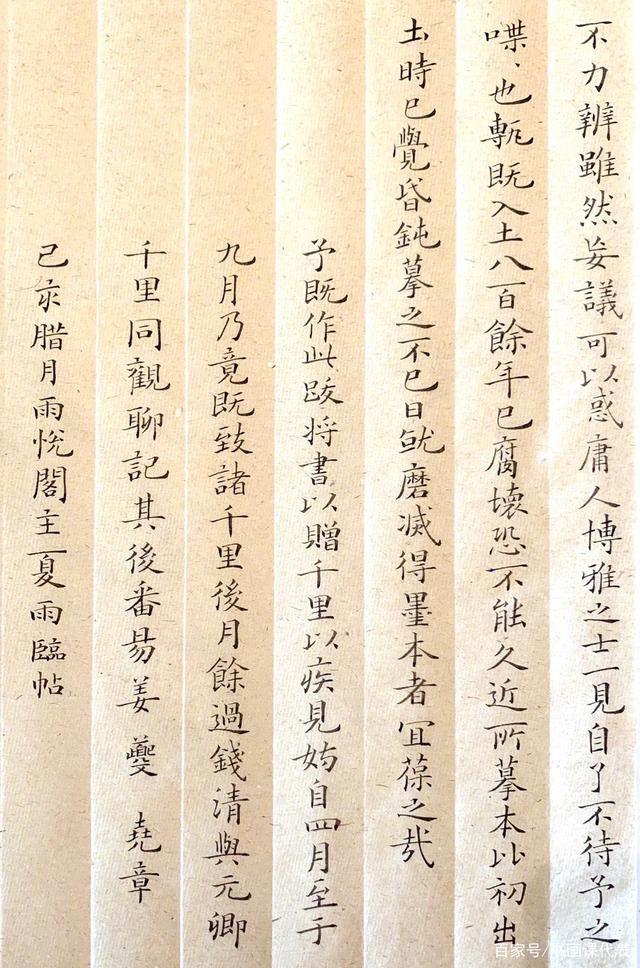 不力辨雖然妄議可以惑庸人博雅之士一見自了不待予之
喋、也甎既入土八百餘年已腐壞恐不能久近所摹本比初出
土時已覺昏鈍摹之不已日就磨滅得墨本者宜葆之哉
予既作此跋将書以贈千里以疾見妨自四月至于
九月乃竟既致諸千里後月餘過錢清與元卿
千里同觀聊記其後番昜姜夔堯章
己亥腊月雨悅閣主夏雨臨帖
百家号/书画课代表